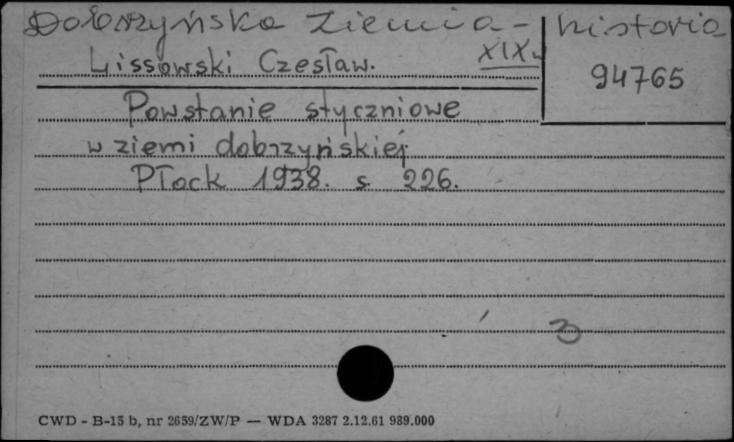 Dobrzyńska Ziemia - historia
XIX w
Lissowski Czesław.
94765
Powstanie styczniowe
w ziemi dobrzyńskiej
Płock 1938. s 226.
3
CWD - B-15 b, nr 2659/ZW/P — WDA 3287 2.12.61 989.000